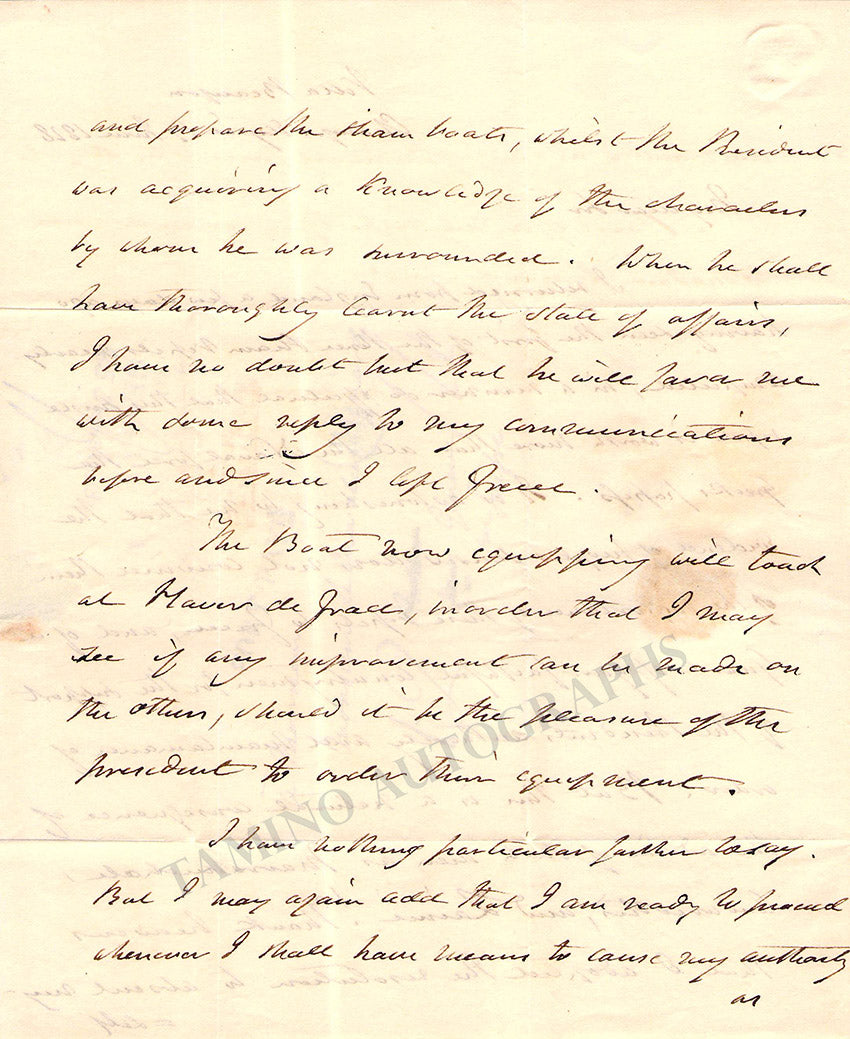 and prepare the steam boats, whilst the President
was acquiring a knowledge of the characters
by whom he was surrounded. When he shall
have thoroughly learnt the state of affairs,
I have no doubt but that he will favor me
with some reply to my communications
before and since I left Greece.
The Boat now equipping will touch
at Havre de Grace, in order that I may
see if any improvement can be made on
the others, should it be the pleasure of the
president to order their equipment.
I have nothing particular further to say.
But I may again add that I am ready to proceed
whenever I shall have means to cause my authority
as
TAMINO AUTOGRAPHS